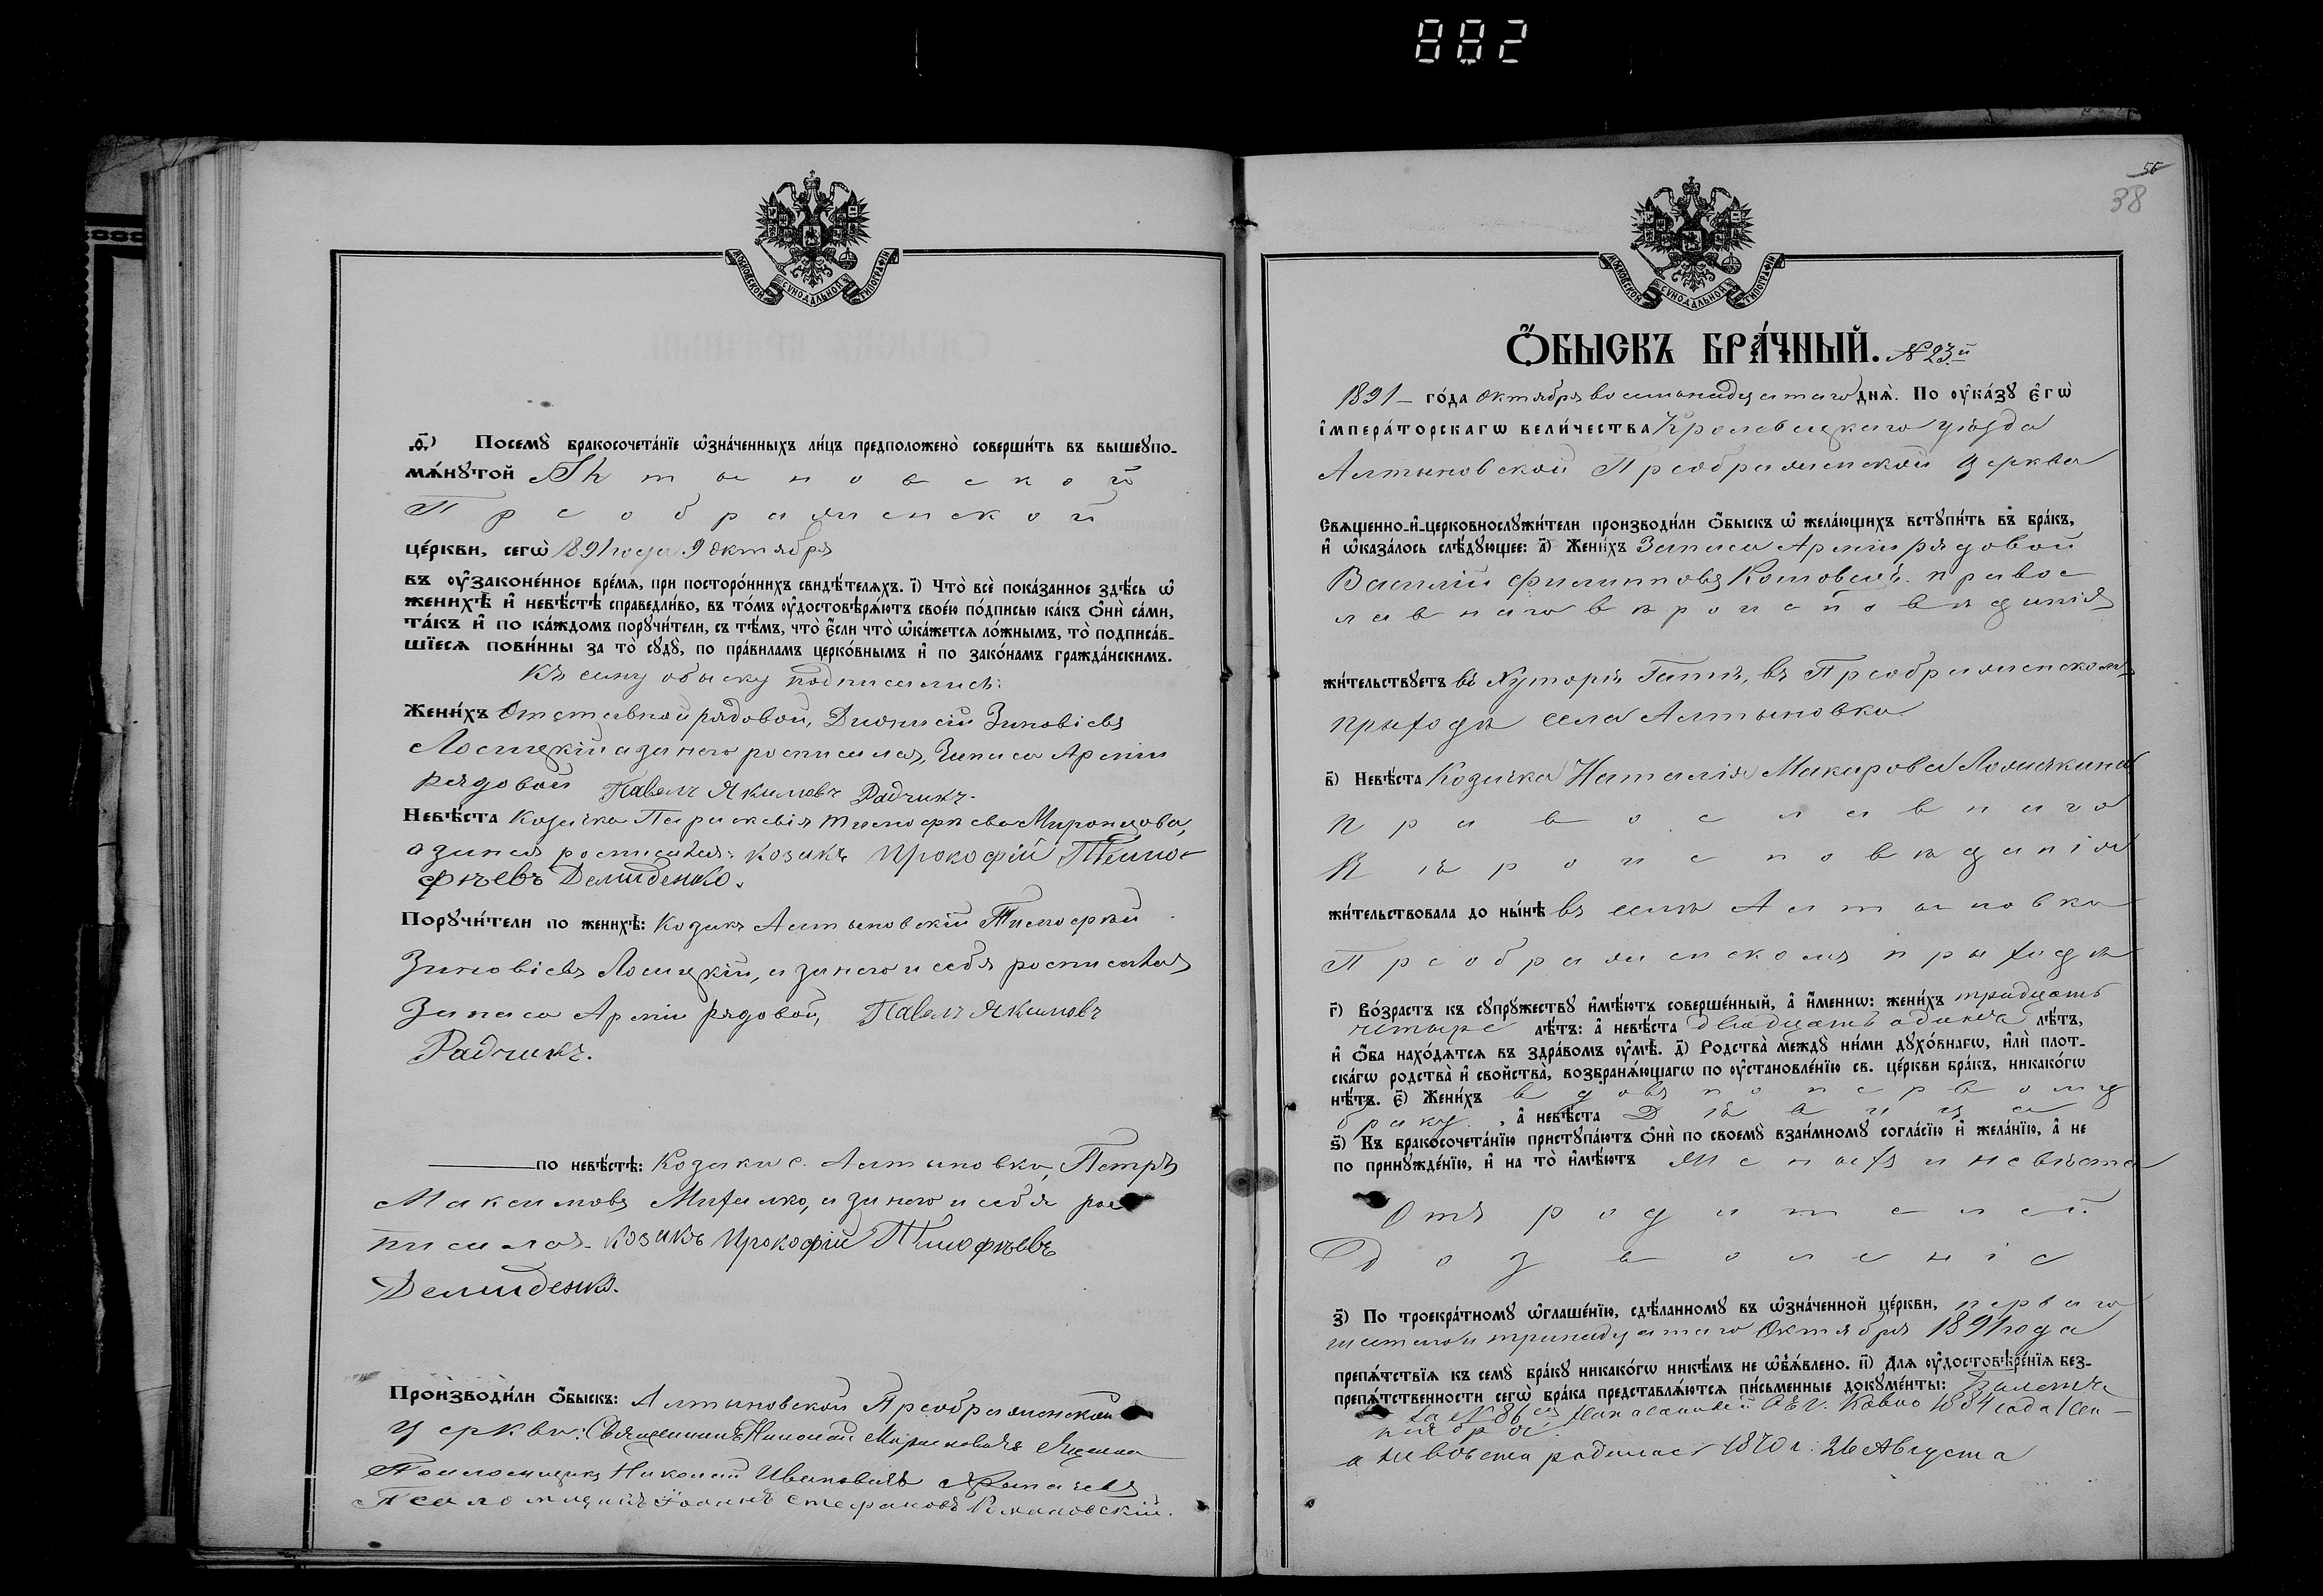 882
МОСКОВСКОЙ СѴНОДАЛЬНОЙ ТИПОГРАФІИ
ѳ҃) Посемꙋ̀ бракосочета́нїе ѡ҆зна́ченныхъ ли́цъ предположено̀ соверши́ть въ вышеꙋпо-
мѧ́нꙋтой Алтыновской
Преображенской
це́ркви, сегѡ̀ 1891 года 9 Октября
въ ᲂу҆законе́нное вре́мѧ, при посторо́ннихъ свидѣ́телѧхъ. і҃) Что̀ всѐ пока́занное здѣ́сь ѡ҆
женихѣ̀ и҆ невѣ́стѣ справедли́во, въ то́мъ ᲂу҆достовѣрѧ́ютъ свое́ю по́дписью ка́къ ѻ҆нѝ са́ми,
та́къ и҆ по ка́ждомъ порꙋчи́тели, съ тѣ́мъ, что̀ є҆́сли что̀ ѡ҆ка́жетсѧ ло́жнымъ, то̀ подписа́в-
шїесѧ пови́нны за то̀ сꙋдꙋ̀, по пра́виламъ церко́внымъ и҆ по зако́намъ гражда́нскимъ.
Къ сему обыску подписались:
Жени́хъ Отставной рядовой, Дионисій Зиновіевъ
Лосицкій а за него росписался, Запаса Арміи
рядовой Павелъ Якимовъ Радчикъ.
Невѣ́ста Козачка Параскевія Тимофѣева Миронцова,
а за нея росписался: козакъ Прокофій Тимо-
фѣевъ Демиденко.
Порꙋчи́тели по женихѣ̀: Козакъ Алтыновскій Тимофѣй
Зиновіевъ Лосицкій, а за него и себя росписался
Запаса Арміи рядовой, Павелъ Якимовъ
Радчикъ.
по невѣ́стѣ: Козаки с. Алтыновки, Петръ
Максимовъ Михалко, а за него и себя рос
писался козакъ Прокофій Тимофѣевъ
Демиденко.
Производи́ли ѻ҆́быскъ: Алтыновской Преображенской
Церкви: Священникъ Николай
Псаломщикъ Николай Ивановичъ
Псаломщикъ Іоаннъ Стефановъ Романовскій.
56
38
МОСКОВСКОЙ СѴНОДАЛЬНОЙ ТИПОГРАФІИ
Ѻ҆́БЫСКЪ БРА́ЧНЫЙ. № 23й
1891 го́да Октября восемнадцатаго днѧ̀. По ᲂу҆ка́зꙋ є҆гѡ̀
і҆мпера́торскагѡ вели́чества Кролевецкаго уѣзда
Алтыновской Преображенской церкви
Свѧщенно-и҆-церковнослꙋжи́тели производи́ли ѻ҆́быскъ ѡ҆ жела́ющихъ встꙋпи́ть въ бра́къ,
и҆ ѡ҆каза́лось слѣ́дꙋющее: а҃) Жени́хъ Запаса Арміи рядовой
Василій Филипповъ православ
лавнаго вѣроисповѣданія
жи́тельствꙋетъ въ Хуторѣ Гатѣ, въ Преображенскомъ
приходѣ села Алтыновки
в҃) Невѣ́ста Козачка Наталія Макарова
православнаго
Вѣроисповѣданія
жи́тельствовала до ны́нѣ въ селѣ Алтыновкѣ
Преображенскомъ приходѣ
г҃) Во́зрастъ къ сꙋпрꙋ́жествꙋ и҆мѣ́ютъ соверше́нный, а҆ и҆́меннѡ: жени́хъ тридцать
четыре лѣ́тъ: а҆ невѣ́ста двадцать одинъ лѣ́тъ,
и҆ ѻ҆́ба нахо́дѧтсѧ въ здра́вомъ ᲂу҆мѣ̀. д҃) Родства̀ междꙋ̀ ни́ми дꙋхо́внагѡ, и҆лѝ плот-
ска́гѡ родства̀ и҆ свойства̀, возбранѧ́ющагѡ по ᲂу҆становле́нїю св. це́ркви бра́къ, никако́гѡ
нѣ́тъ. є҃) Жени́хъ вдовъ по первому
браку, а҆ невѣ́ста Дѣвица
ѕ҃) Къ бракосочета́нїю пристꙋпа́ютъ ѻ҆нѝ по своемꙋ̀ взаи́мномꙋ согла́сїю и҆ жела́нїю, а҆ не
по принꙋжде́нїю, и҆ на то̀ и҆мѣ́ютъ Женихъ и невѣста
Отъ родителей
Дозволеніе
з҃) По троекра́тномꙋ ѡ҆глаше́нїю, сдѣ́ланномꙋ въ ѡ҆зна́ченной це́ркви, перваго
шестаго и тринадцатаго Октября 1891 года
препѧ́тствїѧ къ семꙋ̀ бра́кꙋ никако́гѡ никѣ́мъ не ѡ҆б̾ѧ́влено. и҃) Длѧ ᲂу҆достовѣре́нїѧ без-
препѧ́тственности сегѡ̀ бра́ка представлѧ́ютсѧ пи́сьменные докꙋме́нты: Билетъ
за № 86 г. Ковно 1884 года Сен-
тября
а невѣста родилась 1870 г. 26 Августа